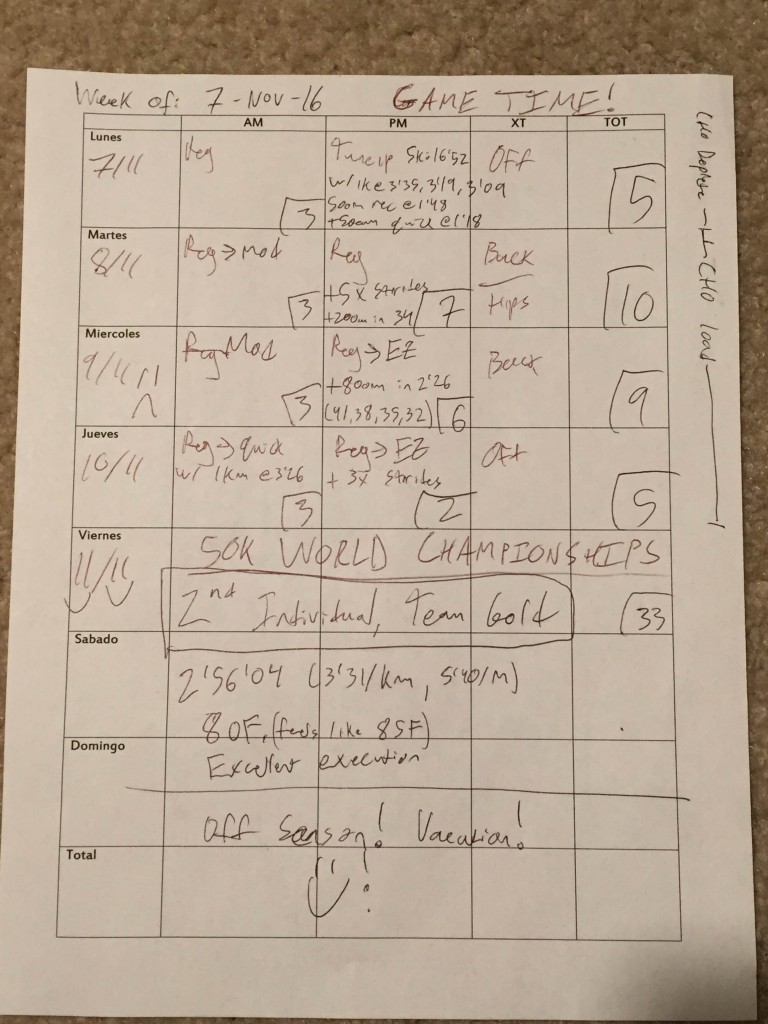 Week of: 7-Nov-16 GAME TIME!
AM PM XT TOT
Lunes
7/11
Reg
3
Tuneup 5k: 16'52
w/ 1k e 3'35, 3'19, 3'09
500m rec @ 1'48
+500m quick @ 1'18
OFF
5
Martes
8/11
Reg → Mod
3
Reg
+5x strides
+200m in 34
7
Back
Hips
10
Miercoles
9/11
Reg Mod
3
Reg → EZ
+800m in 2'26
(41, 38, 35, 32)
6
Back
9
Jueves
10/11
Reg → quick
w/ 1km @ 3'26
3
Reg → EZ
+ 3x strides
2
OFF
5
Viernes
11/11
50K WORLD CHAMPIONSHIPS
2nd Individual, Team Gold
33
Sabado
2'56'04 (3'31/km, 5'40/M)
80F, (feels like 85F)
Domingo
Excellent execution
Off Season! Vacation!
Total
CHO Deplete
CHO load